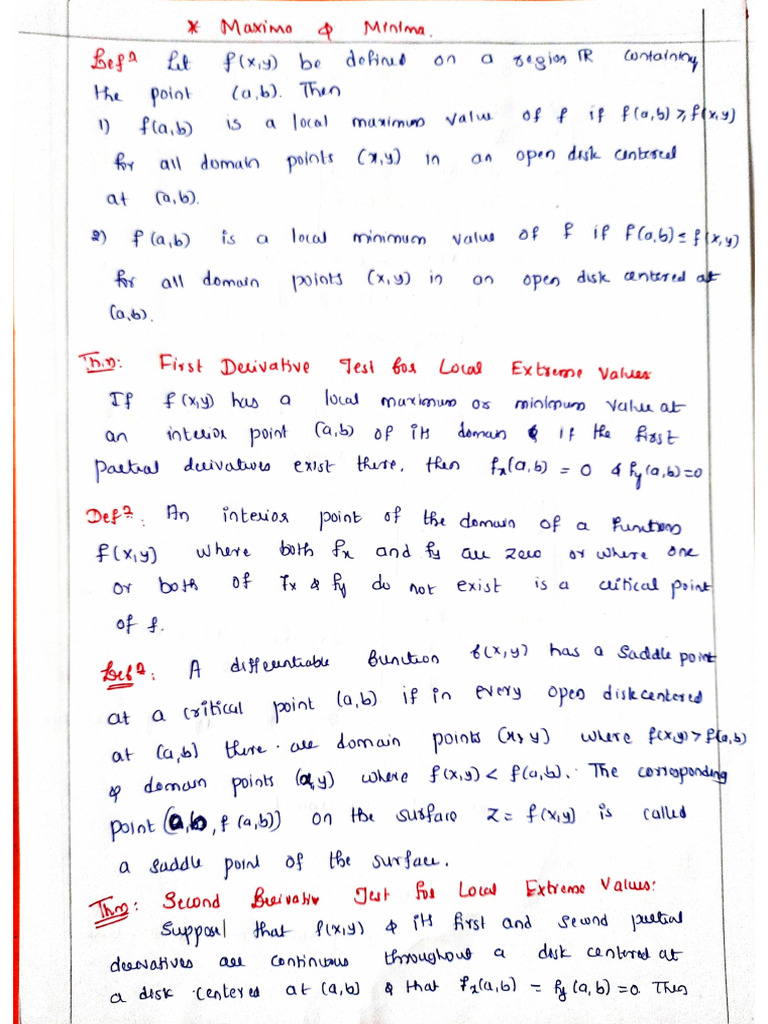 * Maxima & Minima.
Defn Let f(x,y) be defined on a region IR containing
the point (a,b). Then
1) f(a,b) is a local maximum value of f if f(a,b) ≥ f(x,y)
for all domain points (x,y) in an open disk centered
at (a,b).
2) f(a,b) is a local minimum value of f if f(a,b) ≤ f(x,y)
for all domain points (x,y) in an open disk centered at
(a,b).
Thm: First Derivative Test for Local Extreme Values
If f(x,y) has a local maximum or minimum value at
an interior point (a,b) of its domain & if the first
partial derivatives exist there, then fx(a,b) = 0 & fy(a,b)=0
Defn: An interior point of the domain of a function
f(x,y) where both fx and fy are zero or where one
or both of fx & fy do not exist is a critical point
of f.
Defn: A differentiable function f(x,y) has a saddle point
at a critical point (a,b) if in every open disk centered
at (a,b) there are domain points (x,y) where f(x,y) > f(a,b)
& domain points (x,y) where f(x,y) < f(a,b). The corresponding
point (a,b, f(a,b)) on the surface z = f(x,y) is called
a saddle point of the surface.
Thm: Second Derivative Test for Local Extreme Values:
Suppose that f(x,y) & its first and second partial
derivatives are continuous throughout a disk centered at
a disk centered at (a,b) & that fx(a,b) = fy(a,b) = 0. Then